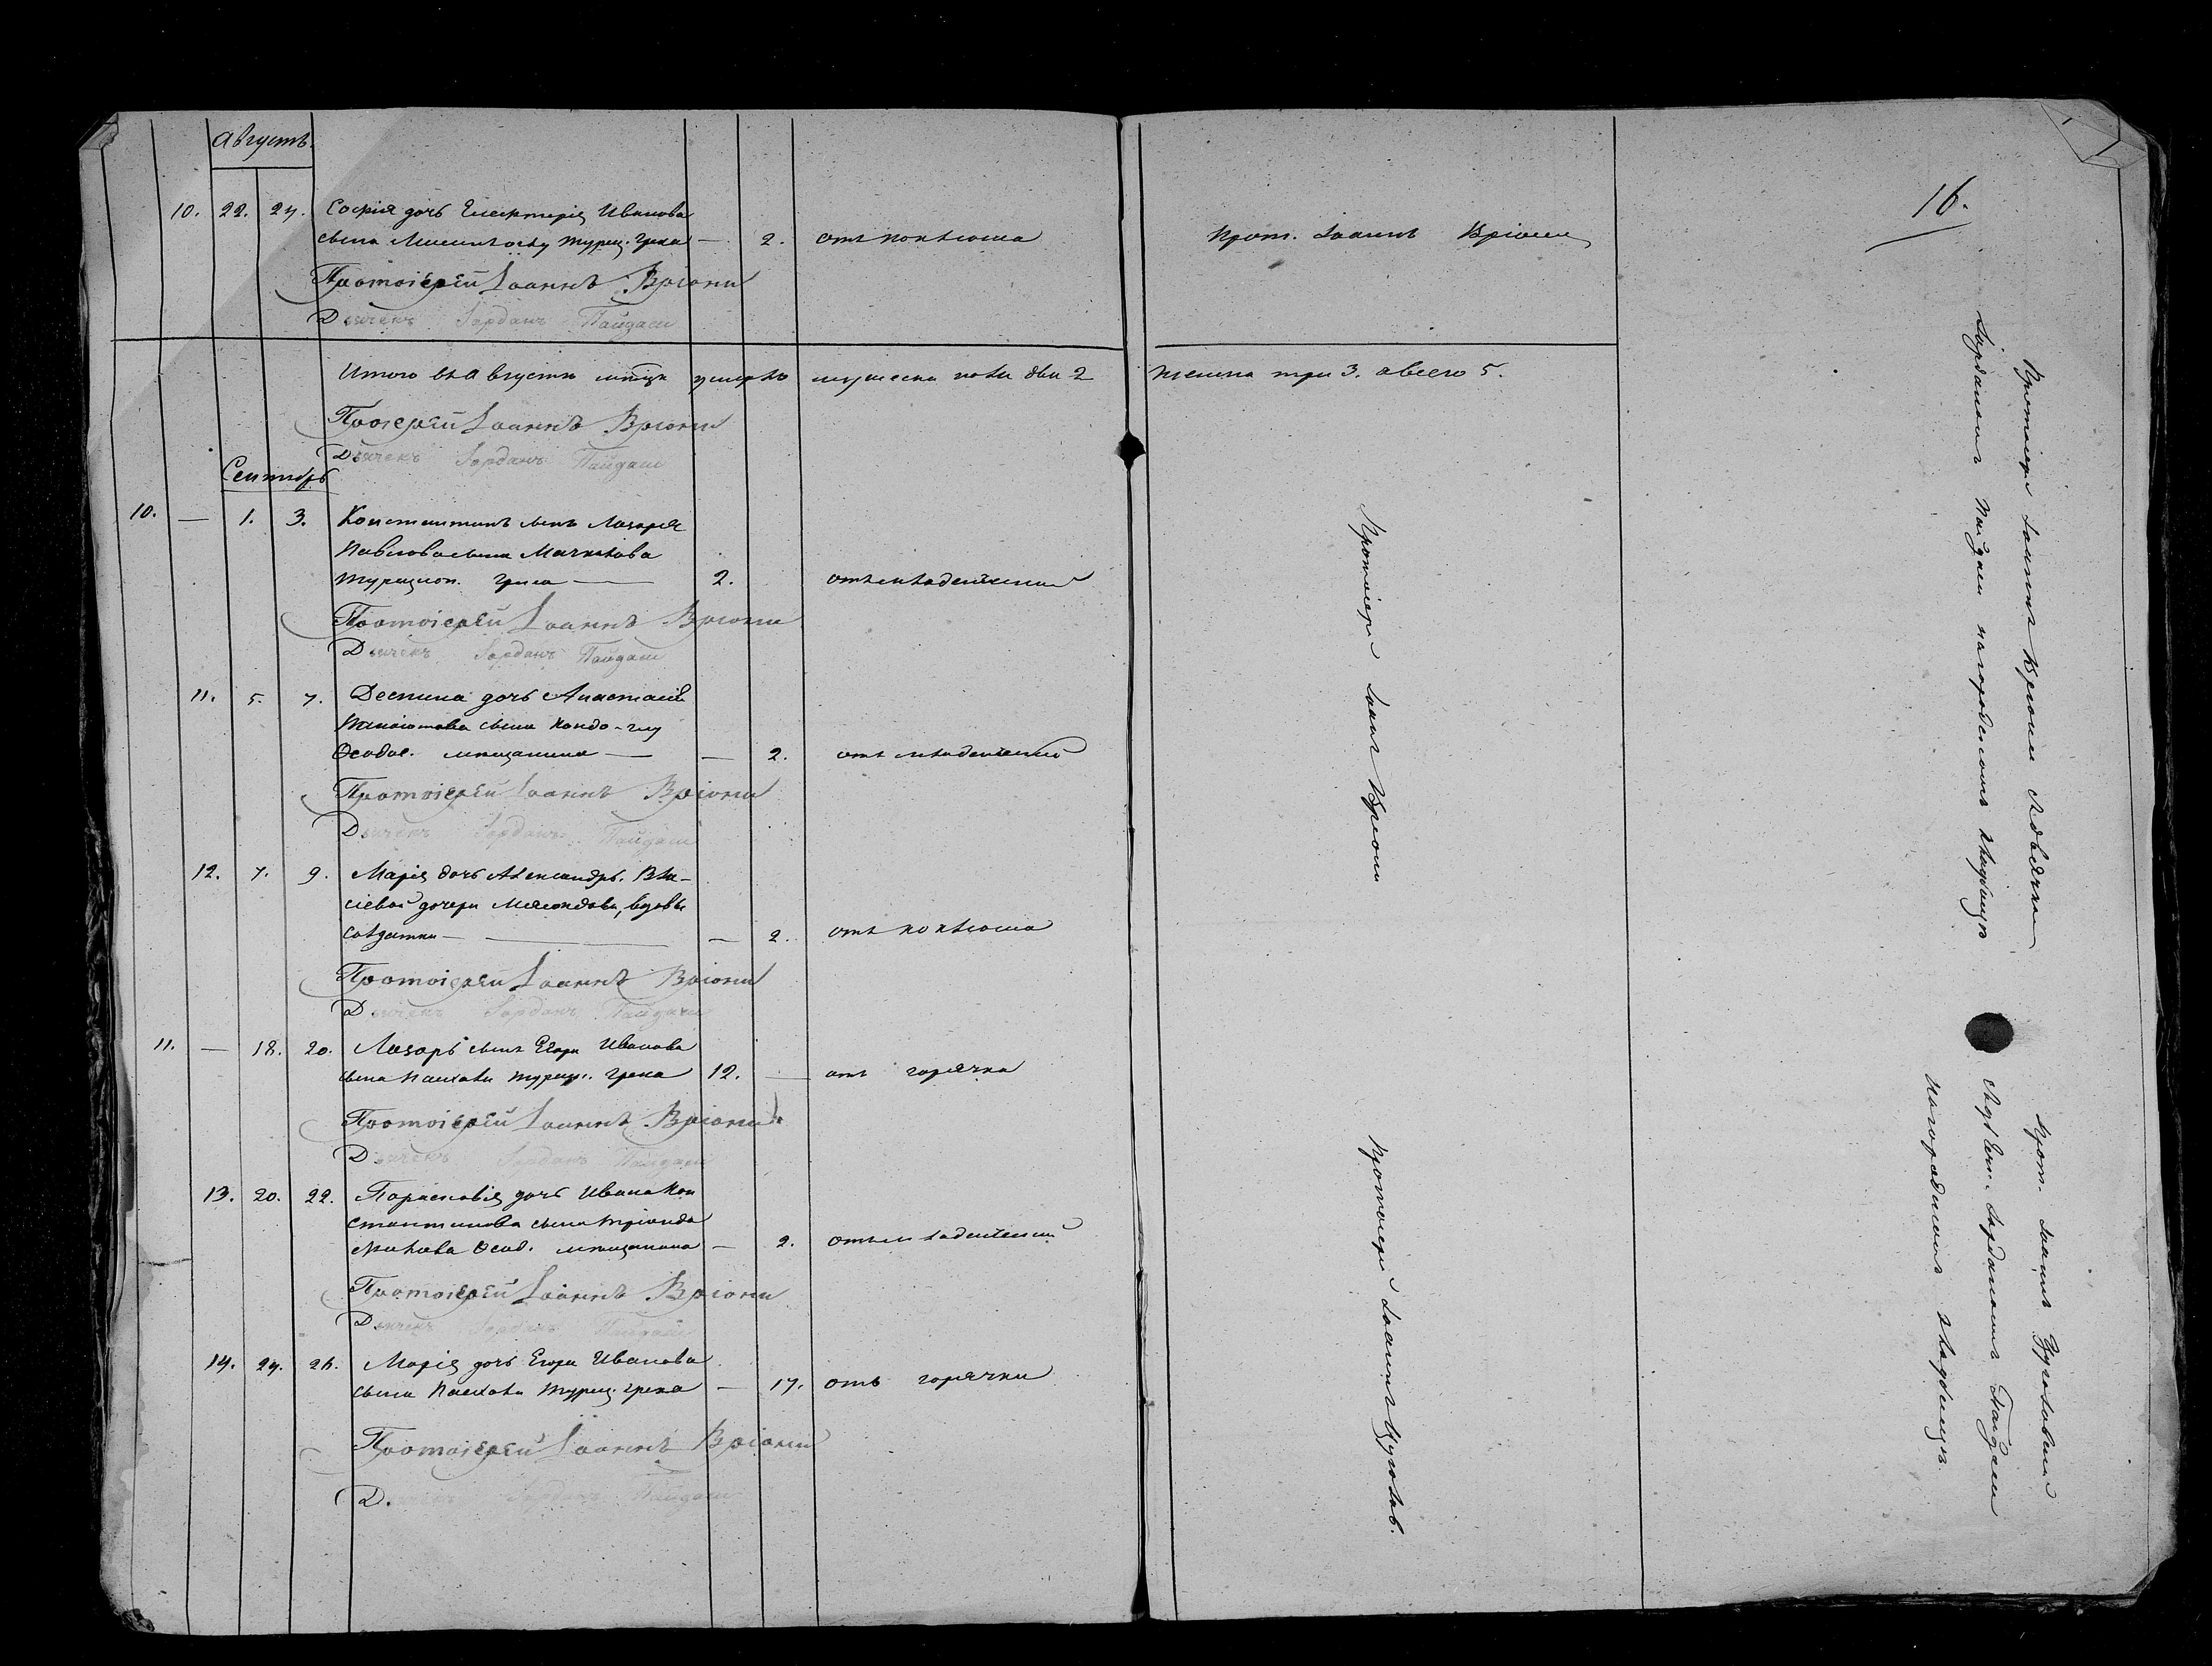 Августъ.
10. 22. 24. Софія дочь Елевтерія Иванова
сына турец. грека — 2. отъ коклюша
Прот. Іоаннъ Вріони
16.
Протоіерей Іоаннъ Вріони
Дьячекъ Іорданъ Пайдаши
Итого въ Августѣ мцѣ умерло мужеска пола два 2
женска три 3. а всего 5.
Протоіерей Іоаннъ Вріони
Дьячекъ Іорданъ Пайдаши
Сентябрь
10. — 1. 3. Константинъ сынъ Лазаря
Павлова сына
Турецкоп. грека — 2. отъ младенческой
Протоіерей Іоаннъ Вріони
Дьячекъ Іорданъ Пайдаши
11. 5. 7. Деспина дочь Анастасія
Панаіотова сына Кондо-глу
Ѳеодос. мѣщанина — — 2. отъ младенческой
Протоіерей Іоаннъ Вріони
Дьячекъ Іорданъ Пайдаши
12. 7. 9. Марія дочь Александры
дочери вдовы
солдатки — — 2. отъ коклюша
Протоіерей Іоаннъ Вріони
Дьячекъ Іорданъ Пайдаши
11. — 18. 20. Лазарь сынъ Егора Иванова
сына турец. грека 12. — отъ горячки
Протоіерей Іоаннъ Вріони
Дьячекъ Іорданъ Пайдаши
13. 20. 22. Параскевія дочь Ивана Кон
стантинова сына
Ѳеод. мѣщанина — 2. отъ младенческой
Протоіерей Іоаннъ Вріони
Дьячекъ Іорданъ Пайдаши
14. 24. 26. Марія дочь Егора Иванова
сына турец. грека — 17. отъ горячки
Протоіерей Іоаннъ Вріони
Д. Іорданъ Пайдаши
Протоіерей Іоаннъ Вріони
Протоіерей Іоаннъ
Протоіерей Іоаннъ Вріони
Іорданомъ Пайдаши на городскомъ кладбищѣ
Прот. Іоаннъ
Іорданомъ Пайдаши
на городскомъ кладбищѣ.